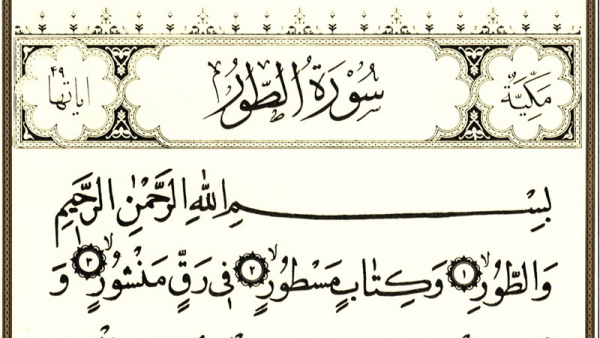 مَكِّيَّةٌ سُورَةُ الطُّورِ اٰيَاتُهَا ٤٩
بِسْمِ اللّٰهِ الرَّحْمٰنِ الرَّحٖيمِ
وَالطُّورِۙ ١ وَكِتَابٍ مَسْطُورٍۙ ٢ فٖى رَقٍّ مَنْشُورٍۙ ٣ وَ